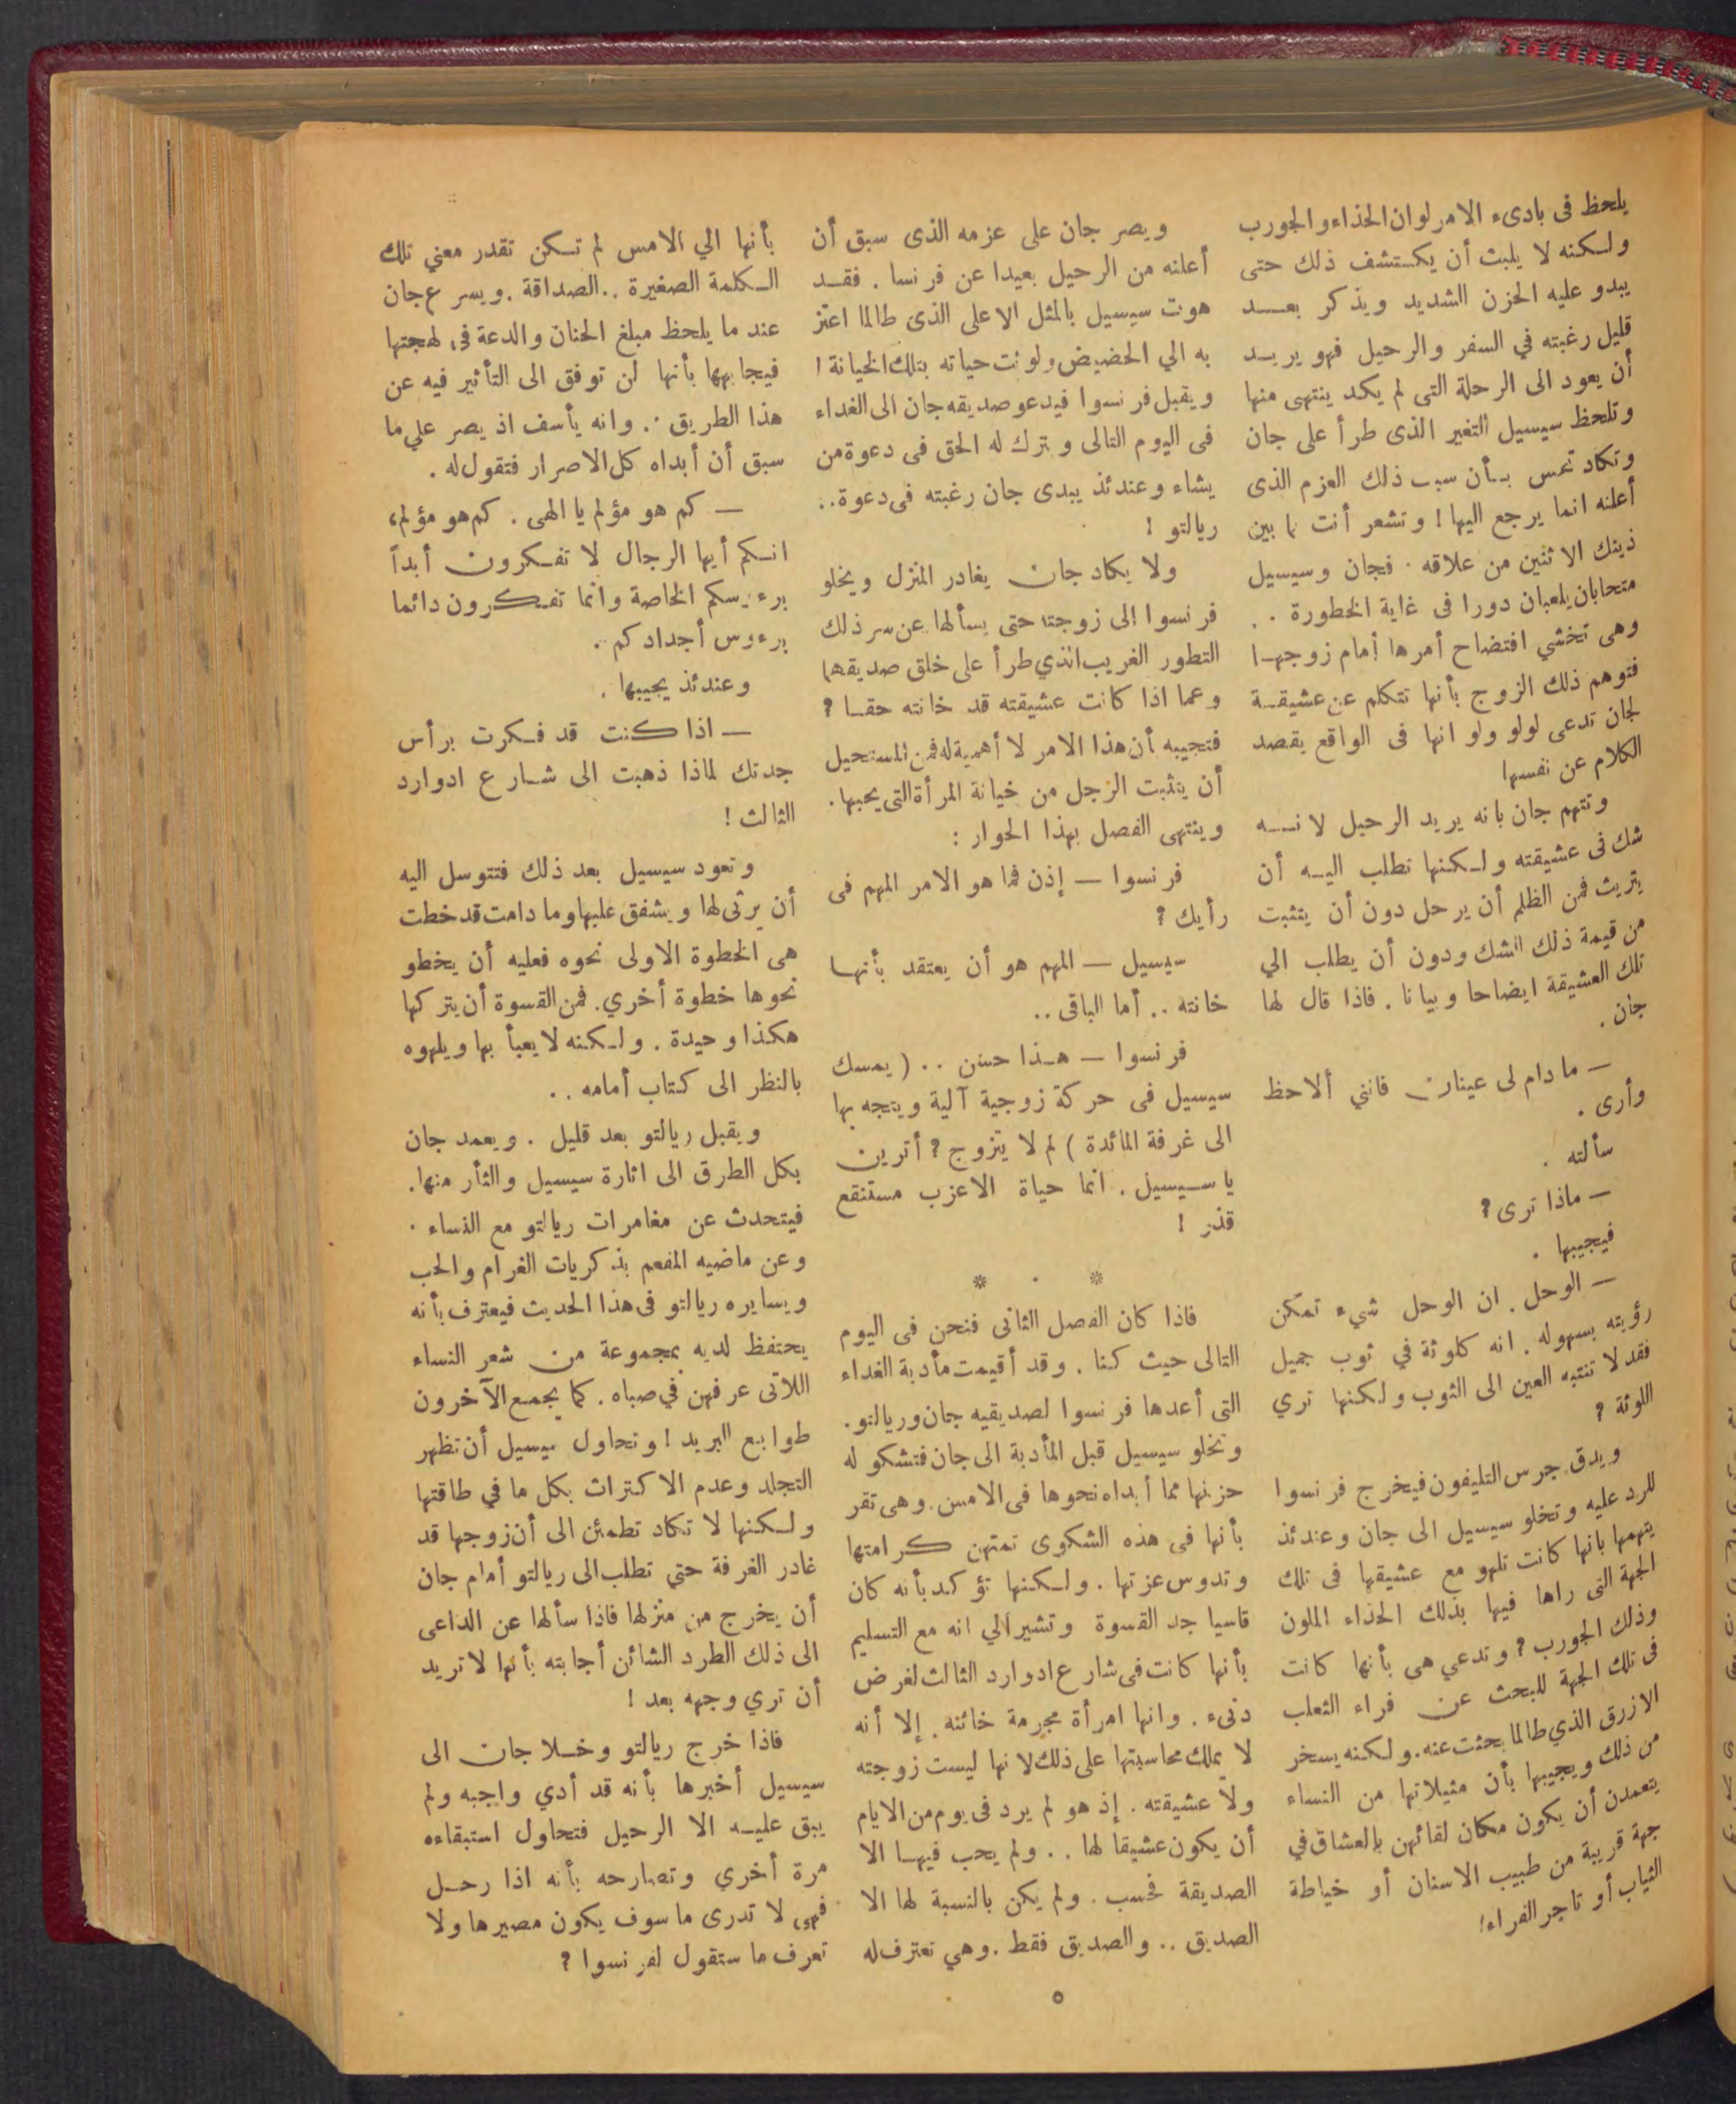 يلحظ فى بادىء الامر لوان الحذاء والجورب
ولكنه لا يلبث أن يكتشف ذلك حتى
يبدو عليه الحزن الشديد ويذكر بعد
قليل رغبته في السفر والرحيل فهو يريد
أن يعود الى الرحلة التى لم يكد ينتهى منها
وتلحظ سيسيل التغير الذى طرأ على جان
وتكاد تحس بأن سبب ذلك العزم الذى
أعلنه انما يرجع اليها ! وتشعر أنت بما بين
ذينك الاثنين من علاقه . فجان وسيسيل
متحابان يلعبان دورا فى غاية الخطورة . .
وهى تخشي افتضاح أمرها أمام زوجها
فتوهم ذلك الزوج بأنها تتكلم عن عشيقة
لجان تدعى لولو ولو انها فى الواقع يقصد
الكلام عن نفسها
وتتهم جان بانه يريد الرحيل لانه
شك فى عشيقته ولكنها تطلب اليه أن
يتريث فمن الظلم أن يرحل دون أن يتثبت
من قيمة ذلك الشك ودون أن يطلب الي
تلك العشيقة ايضاحا وبيانا . فاذا قال لها
جان .
— ما دام لى عينان فانني ألاحظ
وأرى .
سألته .
— ماذا ترى ؟
فيجيبها .
— الوحل . ان الوحل شىء تمكن
رؤيته بسهوله . انه كلوثة في ثوب جميل
فقد لا تنتبه العين الى الثوب ولكنها تري
اللوثة ؟
ويدق جرس التليفون فيخرج فرنسوا
للرد عليه وتخلو سيسيل الى جان وعندئذ
يتهمها بانها كانت تلهو مع عشيقها فى تلك
الجهة التى راها فيها بذلك الحذاء الملون
وذلك الجورب ? وتدعي هى بأنها كانت
فى تلك الجهة للبحث عن فراء الثعلب
الازرق الذي طالما بحثت عنه . ولكنه يسخر
من ذلك ويجيبها بأن مثيلاتها من النساء
يتعمدن أن يكون مكان لقائهن بالعشاق في
جهة قريبة من طبيب الاسنان أو خياطة
الثياب أو تاجر الفراء !
ويصر جان على عزمه الذى سبق أن
أعلنه من الرحيل بعيدا عن فرنسا . فقد
هوت سيسيل بالمثل الاعلى الذى طالما اعتز
به الي الحضيض ولوثت حياته بتلك الخيانة !
ويقبل فرنسوا فيدعو صديقه جان الى الغداء
فى اليوم التالى ويترك له الحق فى دعوة من
يشاء وعندئذ يبدى جان رغبته فى دعوة ..
ريالتو !
ولا يكاد جان يغادر المنزل ويخلو
فرنسوا الى زوجته حتى يسألها عن سر ذلك
التطور الغريب الذي طرأ على خلق صديقهما
وعما اذا كانت عشيقته قد خانته حقا ؟
فتجيبه أن هذا الامر لا أهمية له فمن المستحيل
أن يتثبت الرجل من خيانة المرأة التى يحبها .
وينتهى الفصل بهذا الحوار :
فرنسوا — إذن فما هو الامر المهم فى
رأيك ؟
سيسيل — المهم هو أن يعتقد بأنها
خانته .. أما الباقى ..
فرنسوا — هذا حسن .. ( يمسك
سيسيل فى حركة زوجية آلية ويتجه بها
الى غرفة المائدة ) لم لا يتزوج ؟ أترين
يا سيسيل . انما حياة الاعزب مستنقع
قذر !
* . *
فاذا كان الفصل الثانى فنحن فى اليوم
التالى حيث كنا . وقد أقيمت مأدبة الغداء
التى أعدها فرنسوا لصديقيه جان وريالتو .
وتخلو سيسيل قبل المأدبة الى جان فتشكو له
حزنها مما أبداه نحوها فى الامس . وهى تقر
بأنها فى هذه الشكوى تمتهن كرامتها
وتدوس عزتها . ولكنها تؤكد بأنه كان
قاسيا جد القسوة وتشير الي انه مع التسليم
بأنها كانت فى شارع ادوارد الثالث لغرض
دنىء . وانها امرأة مجرمة خائنه . إلا أنه
لا يملك محاسبتها على ذلك لانها ليست زوجته
ولا عشيقته . إذ هو لم يرد فى يوم من الايام
أن يكون عشيقا لها .. ولم يحب فيها الا
الصديقة فحسب . ولم يكن بالنسبة لها الا
الصديق .. والصديق فقط . وهي تعترف له
بأنها الي الامس لم تكن تقدر معني تلك
الكلمة الصغيرة .. الصداقة . ويسرع جان
عند ما يلحظ مبلغ الحنان والدعة فى لهجتها
فيجابهها بأنها لن توفق الى التأثير فيه عن
هذا الطريق . وانه يأسف اذ يصر علي ما
سبق أن أبداه كل الاصرار فتقول له .
— كم هو مؤلم يا الهى . كم هو مؤلم ،
انكم أيها الرجال لا تفكرون أبداً
برءوسكم الخاصة وانما تفكرون دائما
برءوس أجدادكم .
وعندئذ يجيبها .
— اذا كنت قد فكرت برأس
جدتك لماذا ذهبت الى شارع ادوارد
الثالث !
وتعود سيسيل بعد ذلك فتتوسل اليه
أن يرثى لها ويشفق عليها وما دامت قد خطت
هى الخطوة الاولى نحوه فعليه أن يخطو
نحوها خطوة أخري . فمن القسوة أن يتركها
هكذا وحيدة . ولكنه لا يعبأ بها ويلهوه
بالنظر الى كتاب أمامه ..
ويقبل ريالتو بعد قليل . ويعمد جان
بكل الطرق الى اثارة سيسيل والثأر منها .
فيتحدث عن مغامرات ريالتو مع النساء .
وعن ماضيه المفعم بذكريات الغرام والحب
ويسايره ريالتو فى هذا الحديث فيعترف بأنه
يحتفظ لديه بمجموعة من شعر النساء
اللاتى عرفهن في صباه . كما يجمع الآخرون
طوابع البريد ! وتحاول سيسيل أن تظهر
التجلد وعدم الاكتراث بكل ما في طاقتها
ولكنها لا تكاد تطمئن الى أن زوجها قد
غادر الغرفة حتي تطلب الى ريالتو أمام جان
أن يخرج من منزلها فاذا سألها عن الداعى
الى ذلك الطرد الشائن أجابته بأنها لا تريد
أن تري وجهه بعد !
فاذا خرج ريالتو وخلا جان الى
سيسيل أخبرها بأنه قد أدي واجبه ولم
يبق عليه الا الرحيل فتحاول استبقاءه
مرة أخري وتصارحه بأنه اذا رحل
فهى لا تدرى ما سوف يكون مصيرها ولا
تعرف ما ستقول لفرنسوا ؟
٥